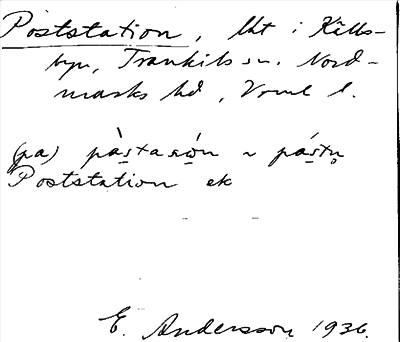 Poststation, lht i Källs-
byn, Trankils sn. Nord-
marks hd, Vrml l.
(pa) pàstasớn ~ pástn̥
Poststation ek
E. Andersson 1936.